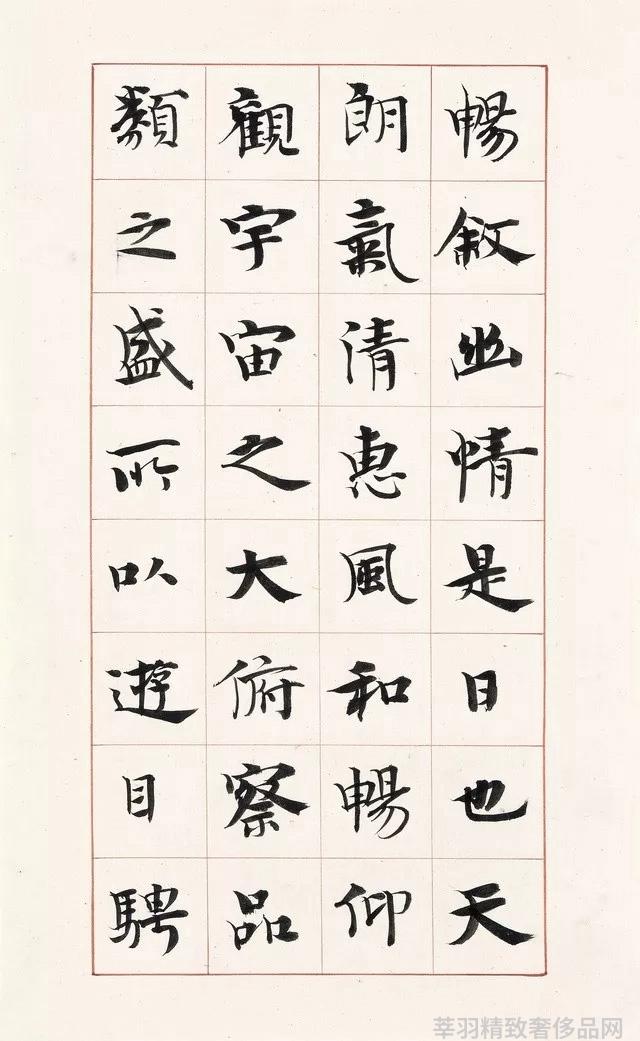 暢敘幽情是日也天
朗氣清惠風和暢仰
觀宇宙之大俯察品
類之盛所以遊目騁
莘羽精致奢侈品网